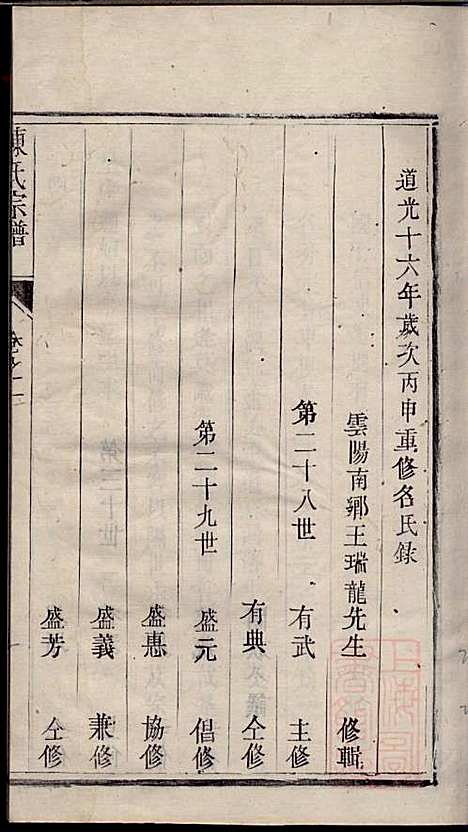 道光十六年歲次丙申重修名氏錄
雲陽南鄉王瑞龍先生 修輯
第二十八世 有武 主修
有典 仝修
第二十九世 盛元 倡修
盛惠 協修
盛義 兼修
盛芳 仝修
陳氏宗譜 卷之一